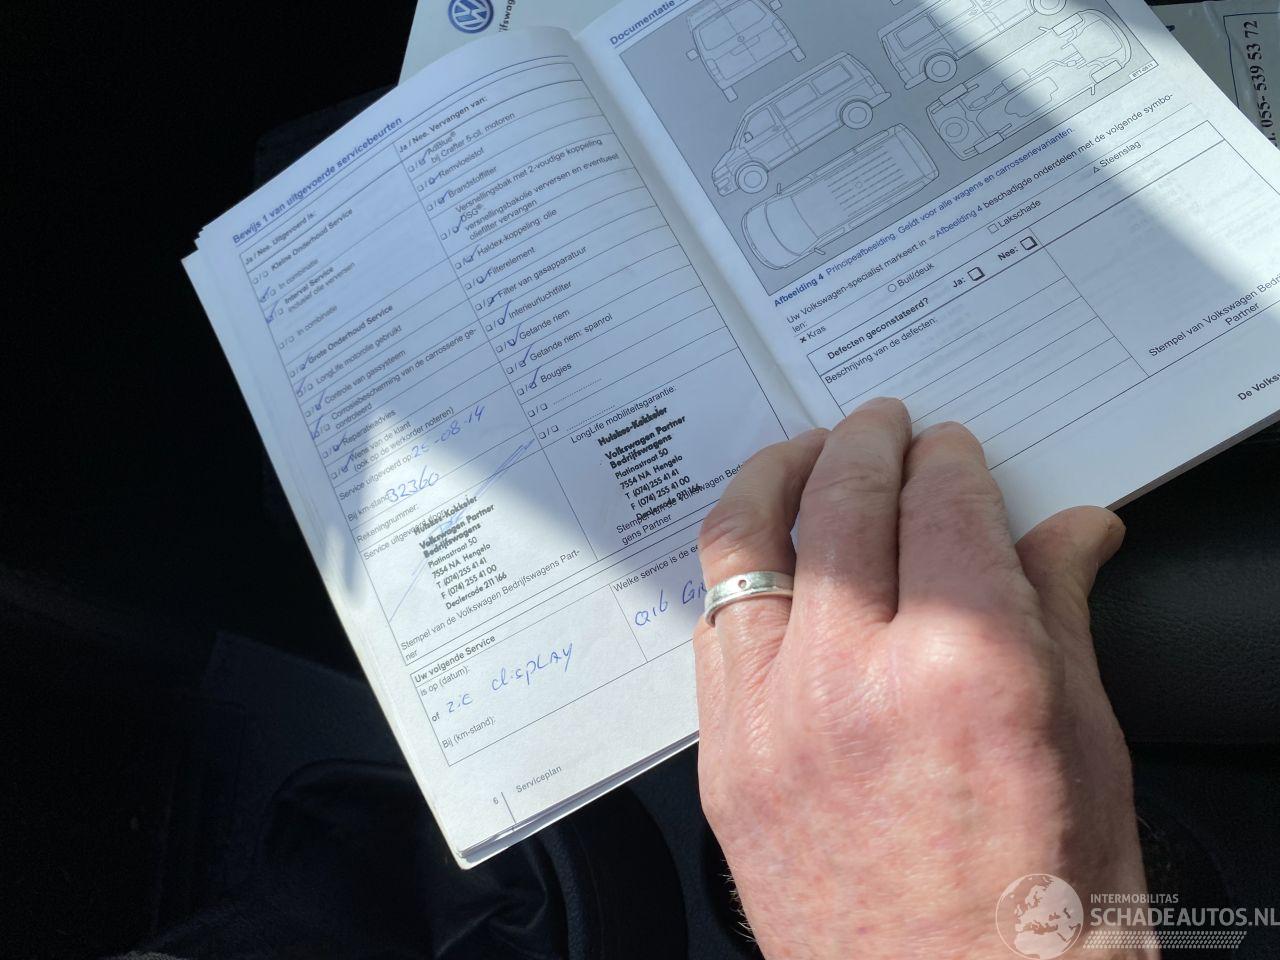 Bewijs 1 van uitgevoerde servicebeurten
Ja / Nee. Uitgevoerd is:
Kleine Onderhoud Service
In combinatie
Interval Service
inclusief olie verversen
In combinatie
Grote Onderhoud Service
LongLife motorolie gebruikt
Controle van gassysteem
Corrosiebescherming van de carrosserie ge-
controleerd
Reparatieadvies
Wens van de klant
(ook op de werkorder noteren)
Service uitgevoerd op:
-08-14
Bij km-stand:
32360
Rekeningnummer:
Service uitgevoerd door:
Hulskes-Kokkeler
Volkswagen Partner
Bedrijfswagens
Platinastraat 50
7554 NA Hengelo
T (074) 255 41 41
F (074) 255 41 00
Dealercode 211 166
Stempel van de Volkswagen Bedrijfswagens Part-
ner
Ja / Nee. Vervangen van:
AdBlue®
bij Crafter 5-cil. motoren
Remvloeistof
Brandstoffilter
Versnellingsbak met 2-voudige koppeling
DSG®
versnellingsbakolie verversen en eventueel
oliefilter vervangen
Haldex-koppeling: olie
Filterelement
Filter van gasapparatuur
Interieurluchtfilter
Getande riem
Getande riem: spanrol
Bougies
LongLife mobiliteitsgarantie:
Hulskes-Kokkeler
Volkswagen Partner
Bedrijfswagens
Platinastraat 50
7554 NA Hengelo
T (074) 255 41 41
F (074) 255 41 00
Dealercode 211 166
Stempel van de Volkswagen Bedrij
gens Partner
Uw volgende Service
is op (datum):
of z.e display
Bij (km-stand):
Welke service is de ee
6 Serviceplan
Documentatie
Afbeelding 4 Principeafbeelding Geldt voor alle wagens en carrosserievarianten.
Uw Volkswagen-specialist markeert in ⇒Afbeelding 4 beschadigde onderdelen met de volgende symbo-
len:
× Kras
○ Buil/deuk
□ Lakschade
△ Steenslag
Defecten geconstateerd? Ja: Nee:
Beschrijving van de defecten:
Stempel van Volkswagen Bedri
Partner
De Volksw
055- 539 53 72
INTERMOBILITAS
SCHADEAUTOS.NL